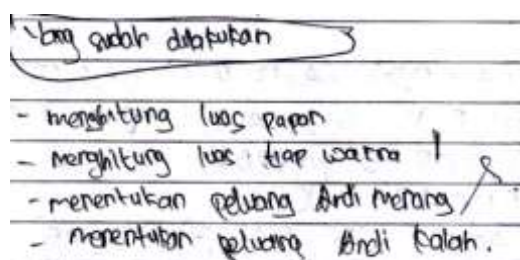 Yang sudah dilakukan
- menghitung luas papan
- menghitung luas tiap warna
- menentukan peluang Andi menang
- menentukan peluang Andi kalah.